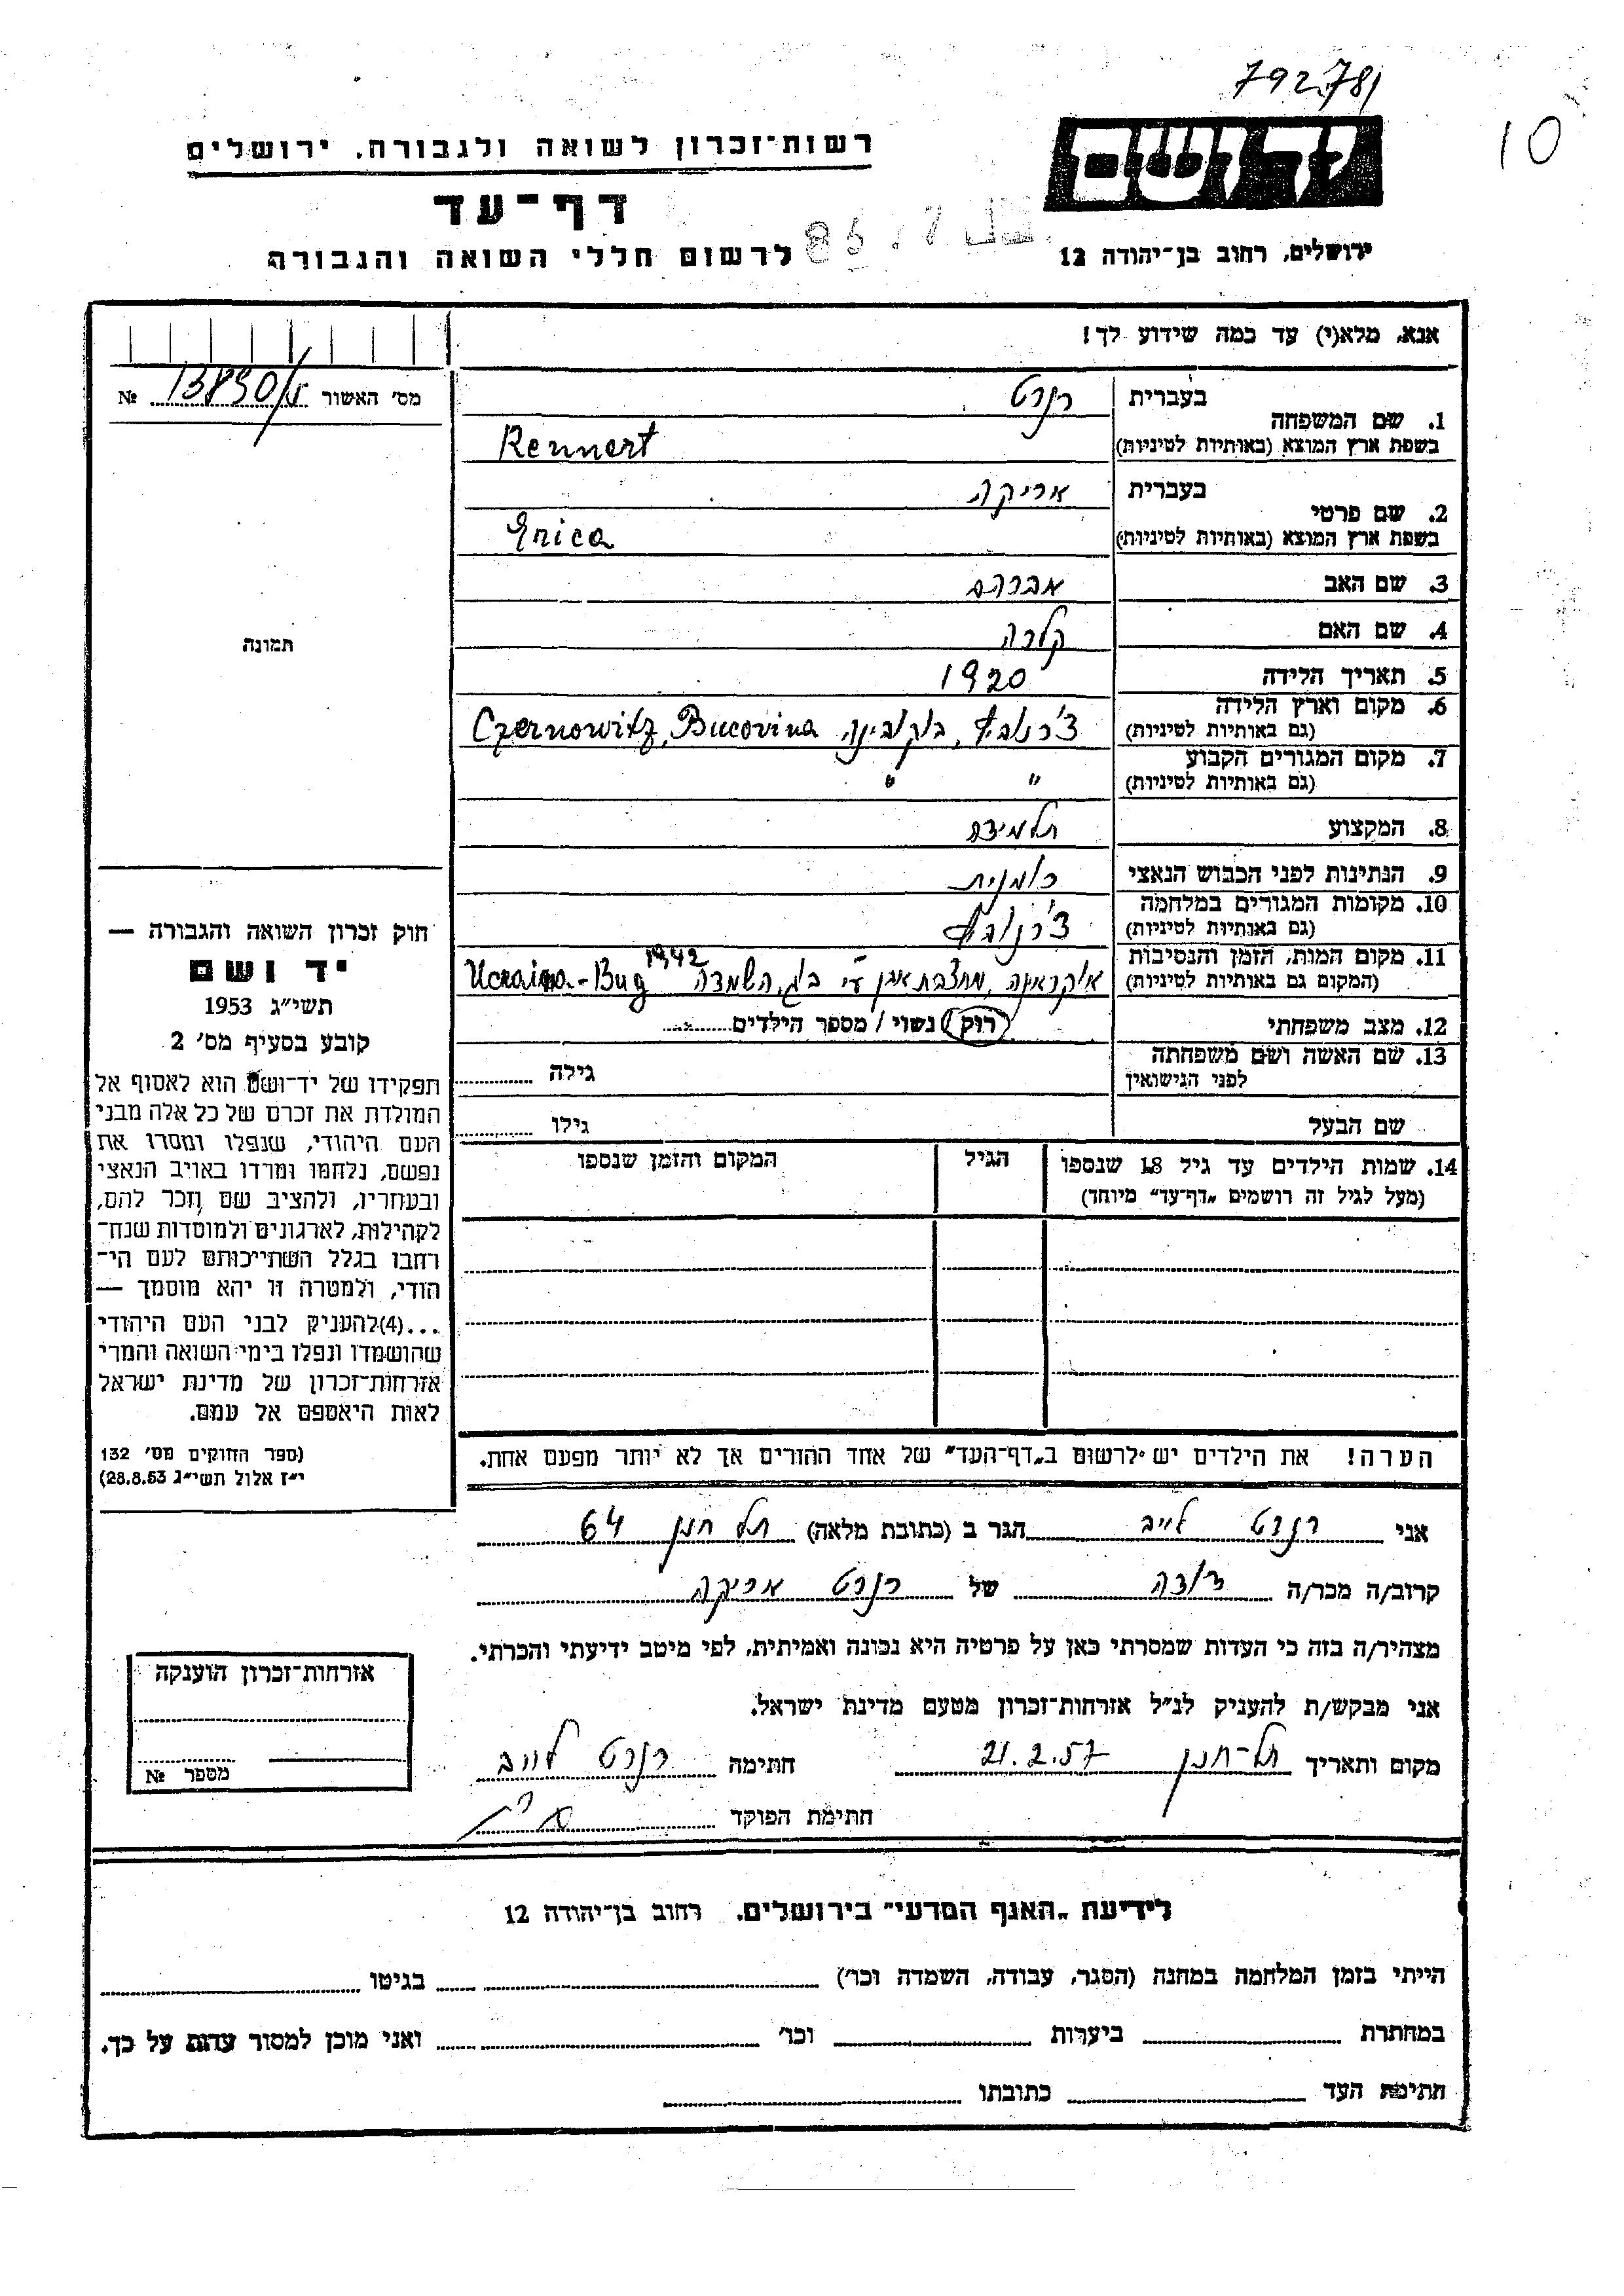 792781
10
יד ושם
רשות־זכרון לשואה ולגבורה, ירושלים
דף־עד
ירושלים, רחוב בן־יהודה 12
לרשום חללי השואה והגבורה
אנא, מלא(י) עד כמה שידוע לך!
מס' האשור №
1. שם המשפחה
בעברית רנרט
בשפת ארץ המוצא (באותיות לטיניות) Rennert
2. שם פרטי
בעברית אריקה
בשפת ארץ המוצא (באותיות לטיניות) Erica
3. שם האב אברהם
4. שם האם קלרה
5. תאריך הלידה 1920
6. מקום וארץ הלידה
(גם באותיות לטיניות) צ'רנוביץ, בוקובינה Czernowitz, Bucovina
7. מקום המגורים הקבוע
(גם באותיות לטיניות) " "
8. המקצוע תלמידה
9. הנתינות לפני הכבוש הנאצי רומנית
10. מקומות המגורים במלחמה
(גם באותיות לטיניות) צ'רנוביץ
11. מקום המות, הזמן והנסיבות
(המקום גם באותיות לטיניות) אוקראינה, מחצבת אבן ע"י בוג, השמדה 1942 Ucraina-Bug
12. מצב משפחתי רוק / נשוי / מספר הילדים
13. שם האשה ושם משפחתה
לפני הנישואין גילה
שם הבעל גילו
14. שמות הילדים עד גיל 18 שנספו
(מעל לגיל זה רושמים „דף־עד" מיוחד)
הגיל
המקום והזמן שנספו
תמונה
חוק זכרון השואה והגבורה —
יד ושם
תשי״ג 1953
קובע בסעיף מס' 2
תפקידו של יד־ושם הוא לאסוף אל
המולדת את זכרם של כל אלה מבני
העם היהודי, שנפלו ומסרו את
נפשם, נלחמו ומרדו באויב הנאצי
ובעוזריו, ולהציב שם וזכר להם,
לקהילות, לארגונים ולמוסדות שנח־
רבו בגלל השתייכותם לעם הי־
הודי, ולמטרה זו יהא מוסמך —
...(4)להעניק לבני העם היהודי
שהושמדו ונפלו בימי השואה והמרי
אזרחות־זכרון של מדינת ישראל
לאות היאספם אל עמם.
(ספר החוקים מס' 132
י״ז אלול תשי״ג 28.8.53)
הערה! את הילדים יש לרשום ב„דף־העד" של אחד ההורים אך לא יותר מפעם אחת.
אני רנרט לייב הגר ב (כתובת מלאה) תל חנן 64
קרוב/ה מכר/ה דודה של רנרט אריקה
מצהיר/ה בזה כי העדות שמסרתי כאן על פרטיה היא נכונה ואמיתית, לפי מיטב ידיעתי והכרתי.
אני מבקש/ת להעניק לנ״ל אזרחות־זכרון מטעם מדינת ישראל.
מקום ותאריך תל-חנן 21.2.57 חתימה רנרט לייב
חתימת הפוקד
אזרחות־זכרון הוענקה
מספר №
לידיעת „האגף המדעי" בירושלים, רחוב בן־יהודה 12
הייתי בזמן המלחמה במחנה (הסגר, עבודה, השמדה וכו') בגיטו
במחתרת ביערות וכו' ואני מוכן למסור עדות על כך.
חתימת העד כתובתו